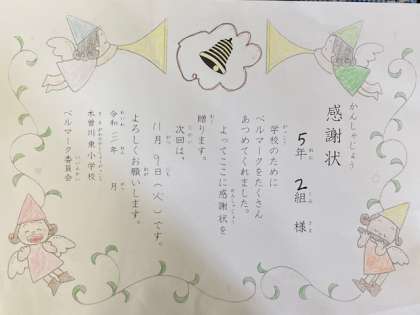 感謝状
かんしゃじょう
5年2組 様
学校のために
ベルマークをたくさん
あつめてくれました。
よってここに感謝状を
贈ります。
次回は、
11月9日(火)です。
よろしくお願いします。
令和三年 月
木曽川東小学校
ベルマーク委員会